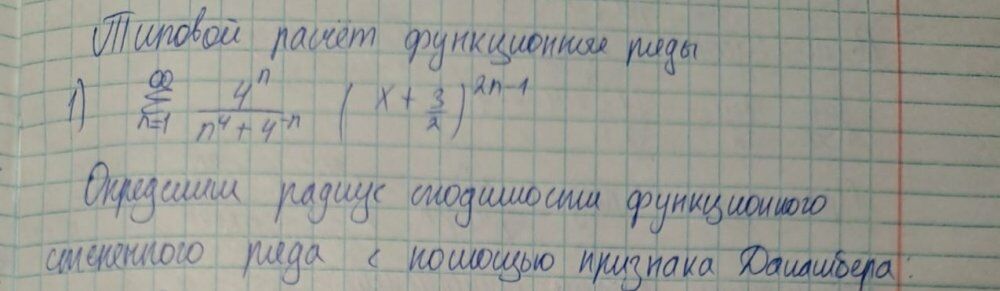 Типовой расчёт функционные ряды
1) ∞ ∑ n=1 4^n / n^4 + 4^-n ( x + 3/2 )^2n-1
Определим радиус сходимости функционного
степенного ряда с помощью признака Даламбера: